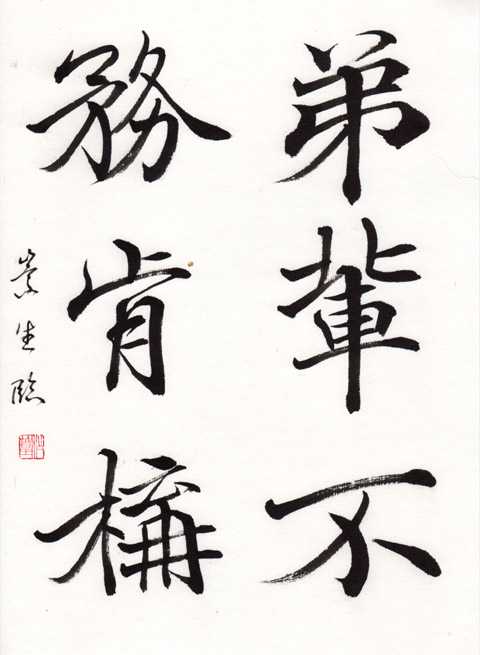 弟輩不
務肯構
崇生臨